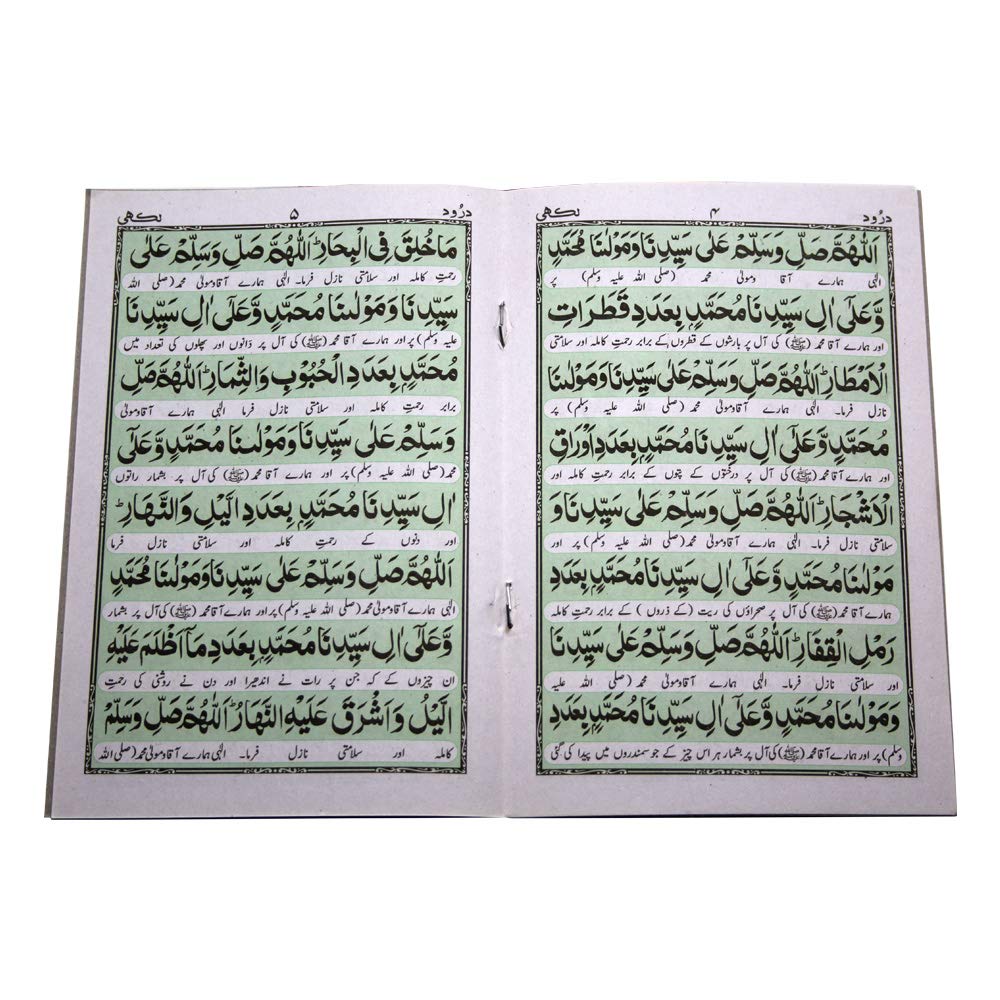 درُود ۴ لکھی
اَللّٰهُمَّ صَلِّ وَسَلِّمْ عَلٰى سَيِّدِنَا وَمَوْلٰنَا مُحَمَّدٍ
الٰہی ہمارے آقا ومولٰی محمد (صلی اللہ علیہ وسلم) پر
وَّعَلٰٓى اٰلِ سَيِّدِنَا مُحَمَّدٍۭ بِعَدَدِ قَطَرَاتِ
اور ہمارے آقا محمد (ﷺ) کی آل پر بارشوں کے قطروں کے برابر رحمتِ کاملہ اور سلامتی
الْاَمْطَارِ ؕ اَللّٰهُمَّ صَلِّ وَسَلِّمْ عَلٰى سَيِّدِنَا وَمَوْلٰنَا
نازل فرما۔ الٰہی ہمارے آقاومولٰی محمد (صلی اللہ علیہ وسلم) پر
مُحَمَّدٍ وَّعَلٰٓى اٰلِ سَيِّدِنَا مُحَمَّدٍۭ بِعَدَدِ اَوْرَاقِ
اور ہمارے آقا محمد (ﷺ) کی آل پر درختوں کے پتوں کے برابر رحمتِ کاملہ اور
الْاَشْجَارِ ؕ اَللّٰهُمَّ صَلِّ وَسَلِّمْ عَلٰى سَيِّدِنَا وَ
سلامتی نازل فرما۔ الٰہی ہمارے آقاومولٰی محمد (صلی اللہ علیہ وسلم) پر اور
مَوْلٰنَا مُحَمَّدٍ وَّعَلٰٓى اٰلِ سَيِّدِنَا مُحَمَّدٍۭ بِعَدَدِ
ہمارے آقا محمد (ﷺ) کی آل پر صحراؤں کی ریت (کے ذروں) کے برابر رحمتِ کاملہ
رَمْلِ الْقِفَارِ ؕ اَللّٰهُمَّ صَلِّ وَسَلِّمْ عَلٰى سَيِّدِنَا
اور سلامتی نازل فرما۔ الٰہی ہمارے آقاومولٰی محمد (صلی اللہ علیہ
وَمَوْلٰنَا مُحَمَّدٍ وَّعَلٰٓى اٰلِ سَيِّدِنَا مُحَمَّدٍۭ بِعَدَدِ
وسلم) پر اور ہمارے آقا محمد (ﷺ) کی آل پر بشمار ہر اس چیز کے جو سمندروں میں پیدا کی گئی
درُود ۵ لکھی
مَا خُلِقَ فِى الْبِحَارِ ؕ اَللّٰهُمَّ صَلِّ وَسَلِّمْ عَلٰى
رحمتِ کاملہ اور سلامتی نازل فرما۔ الٰہی ہمارے آقاومولٰی محمد (صلی اللہ
سَيِّدِنَا وَمَوْلٰىنَا مُحَمَّدٍ وَّعَلٰٓى اٰلِ سَيِّدِنَا
علیہ وسلم) پر اور ہمارے آقا محمد (ﷺ) کی آل پر دانوں اور پھلوں کی تعداد میں
مُحَمَّدٍۭ بِعَدَدِ الْحُبُوْبِ وَالثِّمَارِ ؕ اَللّٰهُمَّ صَلِّ
برابر رحمتِ کاملہ اور سلامتی نازل فرما الٰہی ہمارے آقاومولٰی
وَسَلِّمْ عَلٰى سَيِّدِنَا وَمَوْلٰىنَا مُحَمَّدٍ وَّعَلٰٓى
محمد (صلی اللہ علیہ وسلم) پر اور ہمارے آقا محمد (ﷺ) کی آل پر بشمار راتوں
اٰلِ سَيِّدِنَا مُحَمَّدٍۭ بِعَدَدِ الَّيْلِ وَالنَّهَارِ ؕ
اور دنوں کے رحمتِ کاملہ اور سلامتی نازل فرما
اَللّٰهُمَّ صَلِّ وَسَلِّمْ عَلٰى سَيِّدِنَا وَمَوْلٰىنَا مُحَمَّدٍ
الٰہی ہمارے آقاومولٰی محمد (صلی اللہ علیہ وسلم) پر اور ہمارے آقا محمد (ﷺ) کی آل پر بشمار
وَّعَلٰٓى اٰلِ سَيِّدِنَا مُحَمَّدٍۭ بِعَدَدِ مَآ اَظْلَمَ عَلَيْهِ
ان چیزوں کے کہ جن پر رات نے اندھیرا اور دن نے روشنی کی رحمتِ
الَّيْلُ وَاَشْرَقَ عَلَيْهِ النَّهَارُ ؕ اَللّٰهُمَّ صَلِّ وَسَلِّمْ
کاملہ اور سلامتی نازل فرما۔ الٰہی ہمارے آقاومولٰی محمد (صلی اللہ